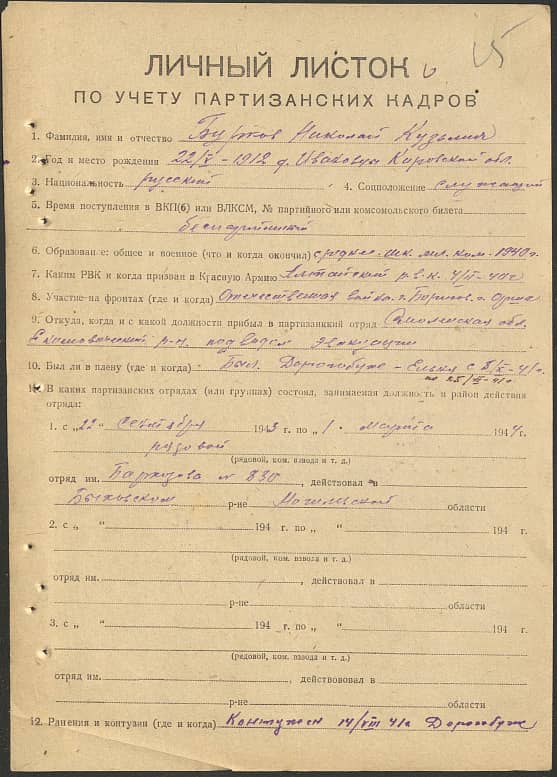 5
ЛИЧНЫЙ ЛИСТОК
ПО УЧЕТУ ПАРТИЗАНСКИХ КАДРОВ
1. Фамилия, имя и отчество Николай Кузьмич
2. Год и место рождения 22/V-1912 д. Кировской обл.
3. Национальность русский 4. Соцположение служащий
5. Время поступления в ВКП(б) или ВЛКСМ, № партийного или комсомольского билета
беспартийный
6. Образование: общее и военное (что и когда окончил) среднее шк. мл. ком. 1940 г.
7. Каким РВК и когда призван в Красную Армию Алтайский р.в.к.
8. Участие на фронтах (где и когда) Отечественная война г. Борисов. г. Орша
9. Откуда, когда и с какой должности прибыл в партизанский отряд Смоленская обл.
Екимовический р-н. под видом эвакуации
10. Был ли в плену (где и когда) Был. Дорогобуж - Ельня с
11. В каких партизанских отрядах (или группах) состоял, занимаемая должность и район действия
отряда:
1. с „22" сентября 1943 г. по „1" марта 1944 г.
рядовой
(рядовой, ком. взвода и т. д.)
отряд им. № 830, действовал в
Быховском р-не Могилевской области
2. с „ " 194 г. по „ " 194 г.
(рядовой, ком. взвода и т. д.)
отряд им. , действовал в
р-не области
3. с „ " 194 г. по „ " 194 г.
(рядовой, ком. взвода и т. д.)
отряд им. , действововал в
р-не области
12. Ранения и контузии (где и когда) Контужен 14/VIII 41г Дорогобуж